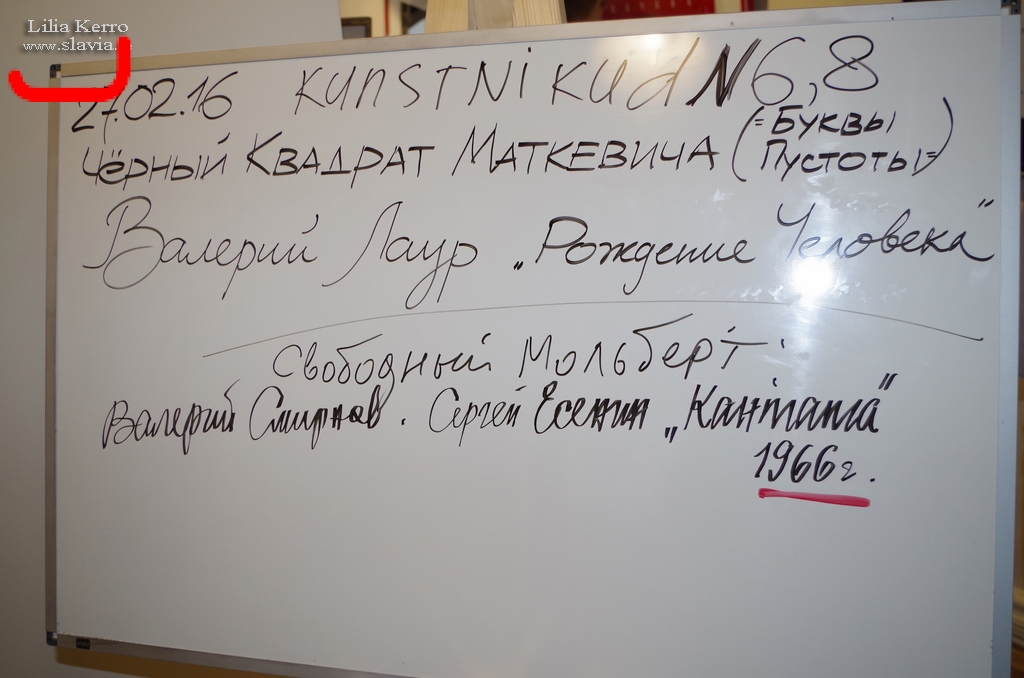 Lilia Kerro
www.slavia.
27.02.16 KUNSTNIKUD N6,8
Чёрный Квадрат Маткевича (=Буквы Пустоты=)
Валерий Лаур „Рождение Человека“
Свободный Мольберт:
Валерий Смирнов. Сергей Есенин „Кантата“
1966г.